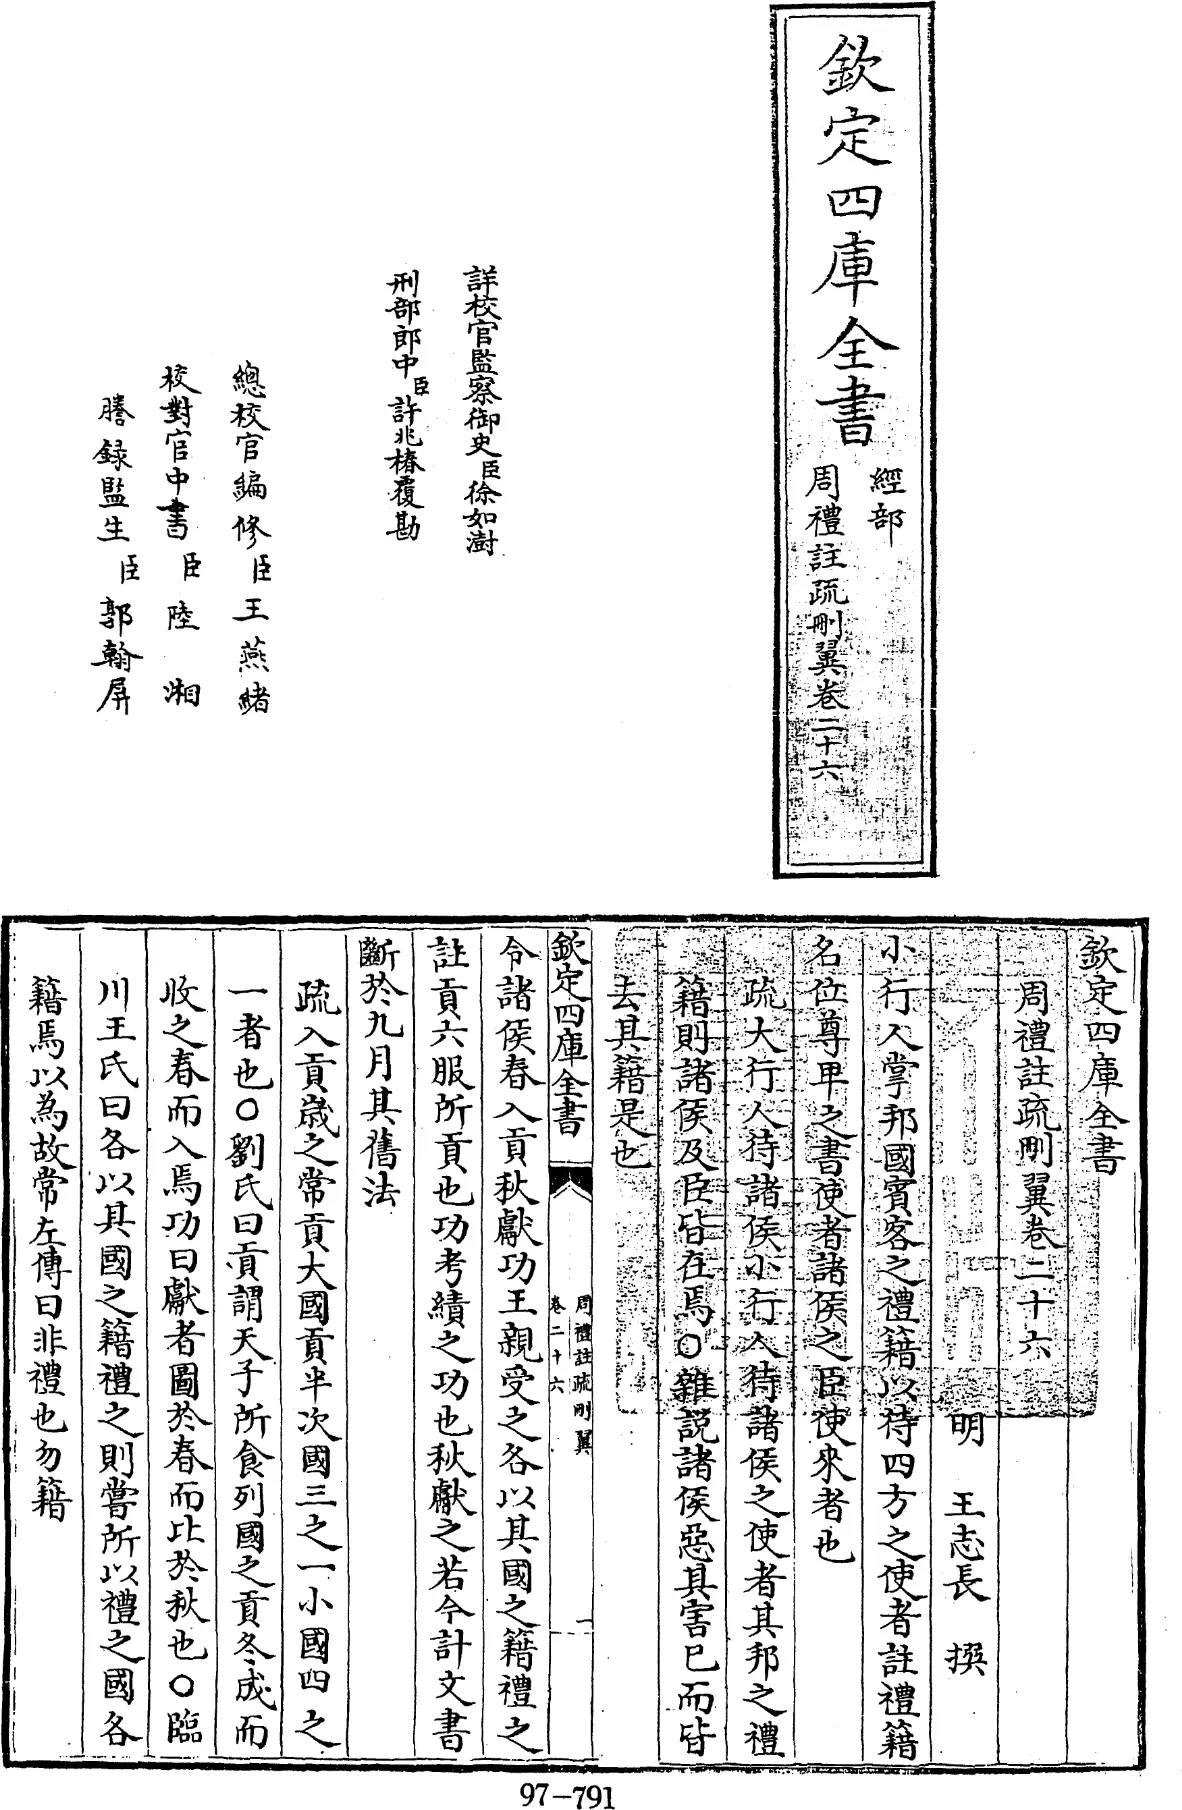 欽定四庫全書
經部
周禮註疏刪翼卷二十六
詳校官監察御史臣徐如澍
刑部郎中臣許兆椿覆勘
總校官編修臣王燕緒
校對官中書臣陸湘
謄錄監生臣郭翰屏
欽定四庫全書
周禮註疏刪翼卷二十六
明 王志長 撰
小行人掌邦國賓客之禮籍以待四方之使者註禮籍
名位尊卑之書使者諸侯之臣使來者也
疏大行人待諸侯小行人待諸侯之使者其邦之禮
籍則諸侯及臣皆在焉○雜説諸侯惡其害已而皆
去其籍是也
欽定四庫全書
周禮註疏刪翼
卷二十六
一
令諸侯春入貢秋獻功王親受之各以其國之籍禮之
註貢六服所貢也功考績之功也秋獻之若今計文書
斷於九月其舊法
疏入貢歲之常貢大國貢半次國三之一小國四之
一者也○劉氏曰貢謂天子所食列國之貢冬成而
收之春而入焉功曰獻者圖於春而比於秋也○臨
川王氏曰各以其國之籍禮之則嘗所以禮之國各
籍焉以為故常左傳曰非禮也勿籍
97-791